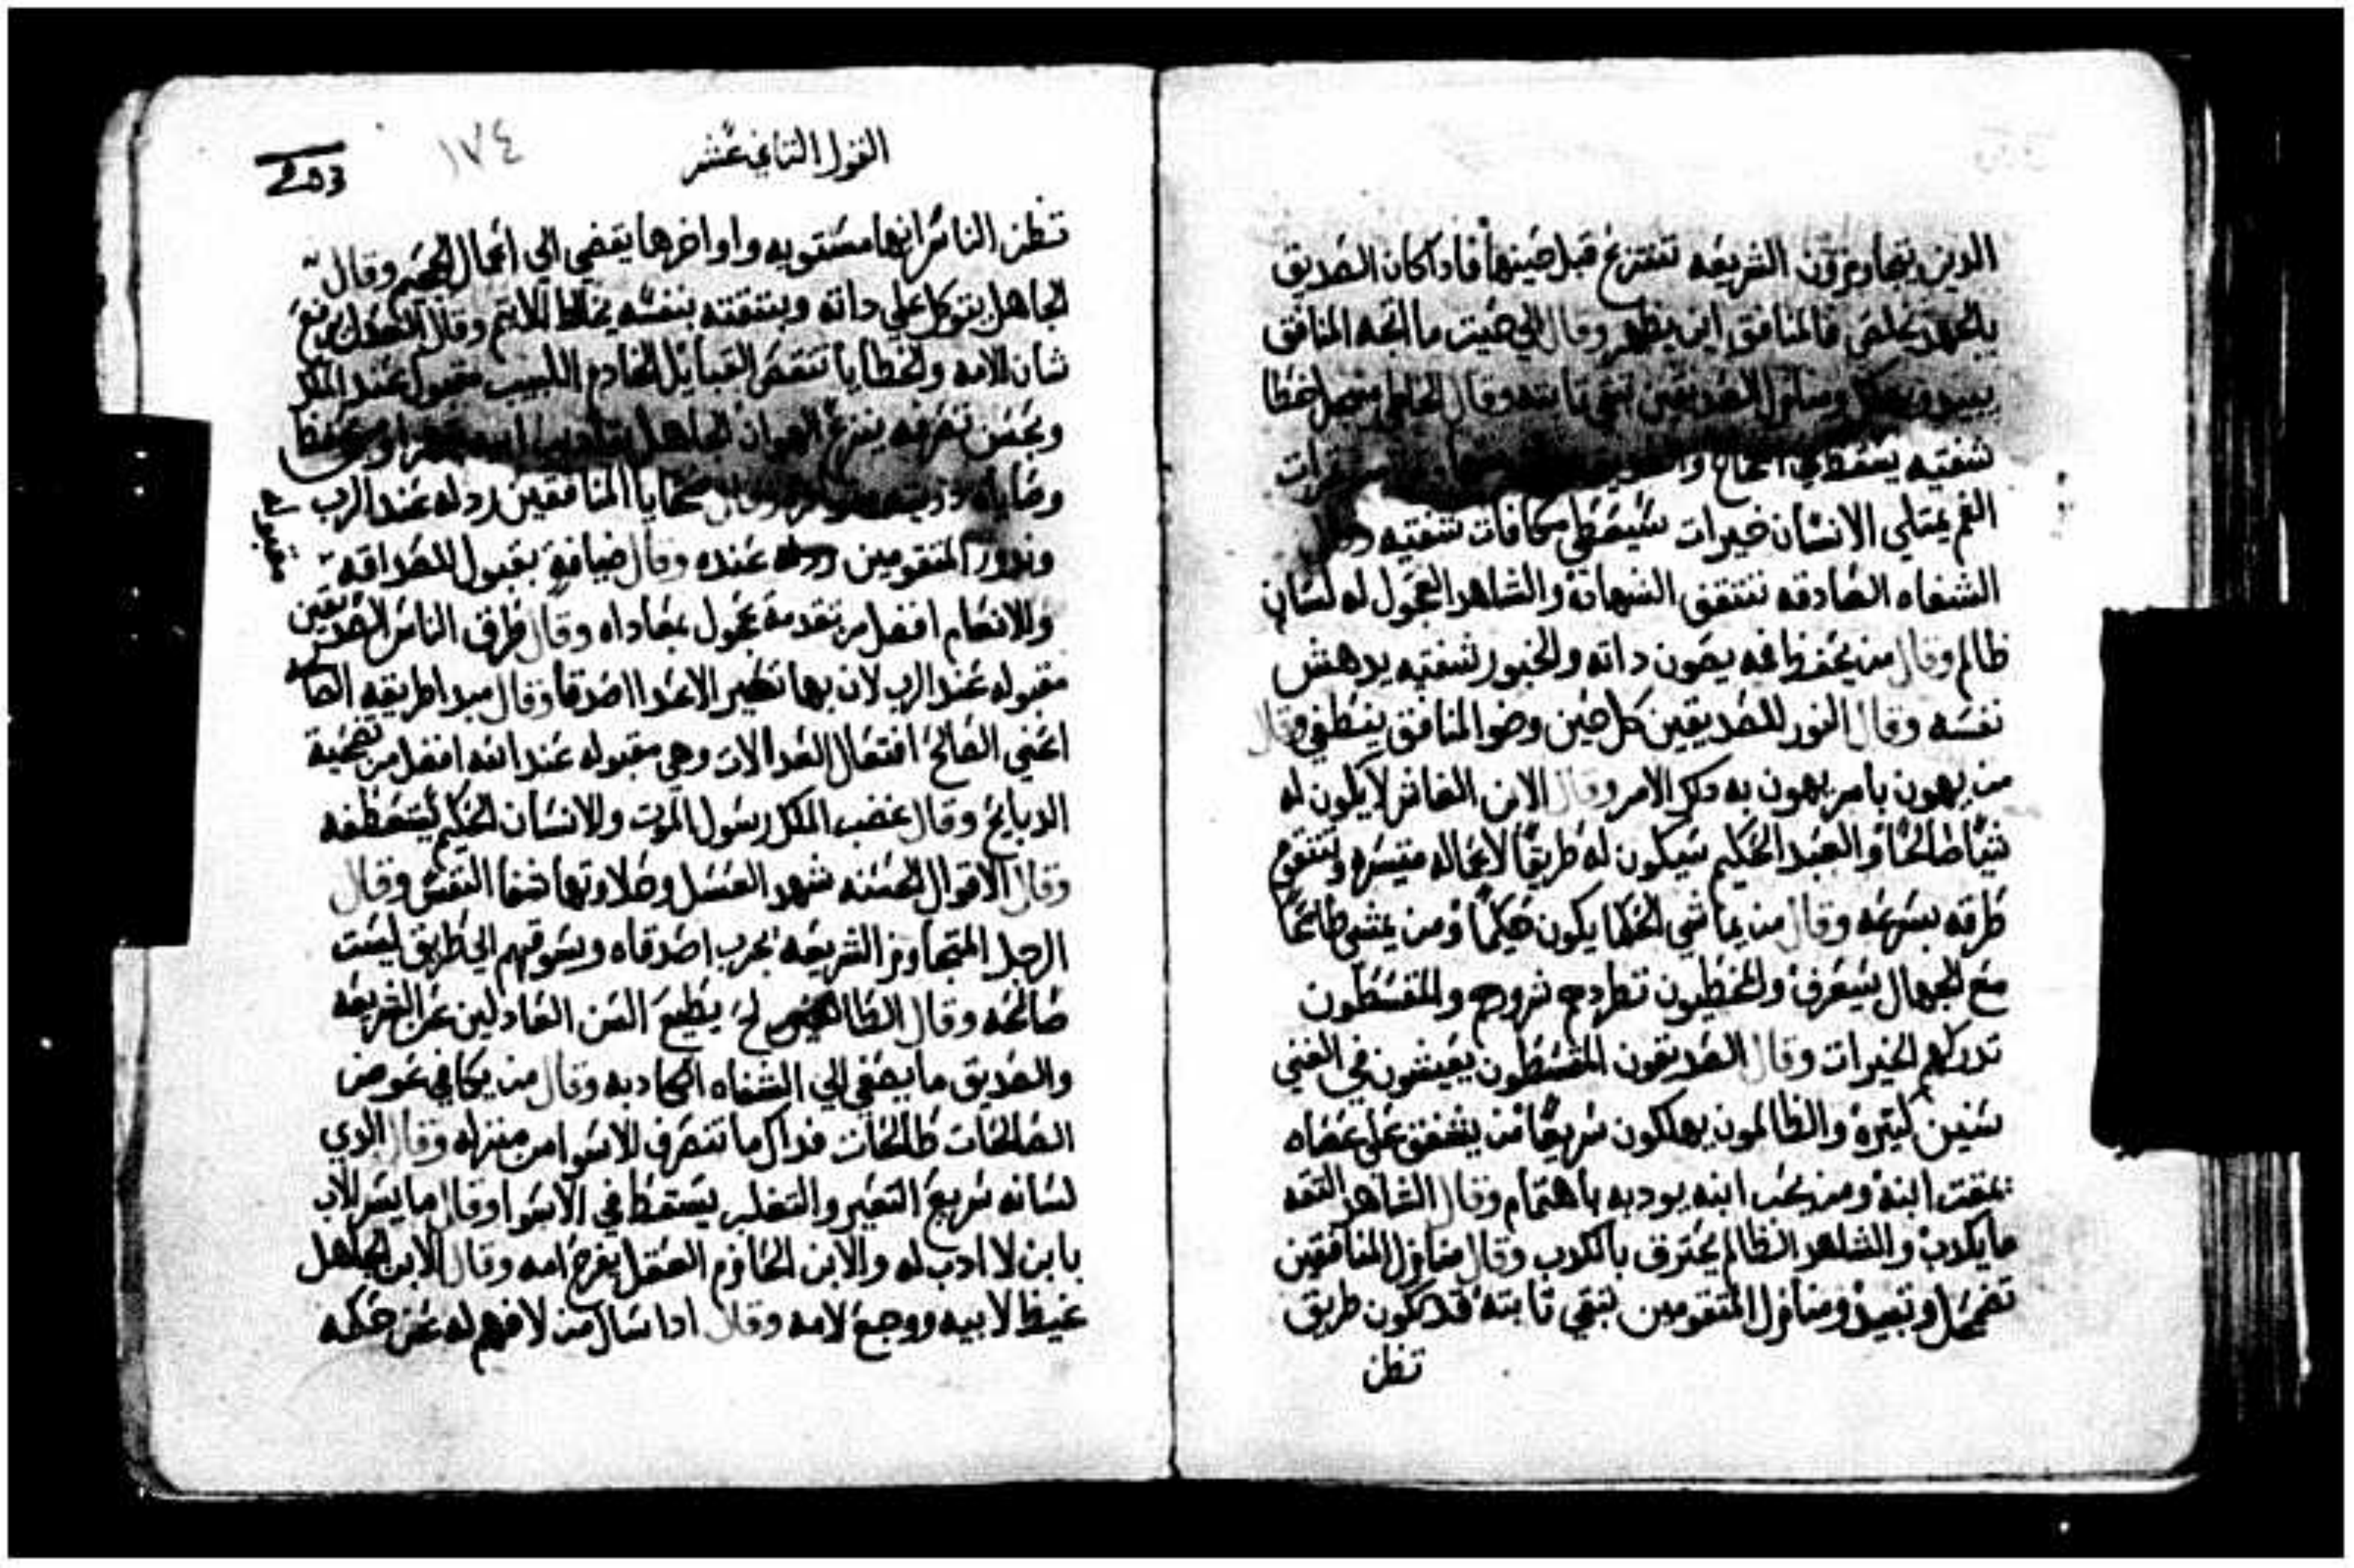 الدين يتجاوزون الشريعه تنتزع قبل حينها فاداكان الصديق
بالجهد يخلص فالمنافق اين يظهر وقال الي حيث ما اتجه المنافق
يبيد ومنازل الصديقين تبقي تابته وقال
شفتيه يسقط في
الفم يمتلي الانسان خيرات سيعطي مكافات شفتيه
الشفاه الصادقه تتقف الشهاده والشاهد العجول له لسان
ظالم وقال من يحفظ فمه يصون داته والجسور لشفتيه يدهش
نفسه وقال النور للصديقين كل حين وضو المنافق ينطفي وقال
من يهون بامر يهون به دكل الامر وقال الابن الغاش لا يكون له
شياً صالحاً والعبد الحكيم سيكون له طريقاً لاعماله متيسره وتتقوم
طرقه بسرعه وقال من يماشي الحكما يكون حكيماً ومن يمشي طايعاً
مع الجهال سيعرف والمخطيون تطردهم شرورهم والمقسطون
تدركهم الخيرات وقال الصديقون المقسطون يعيشون في الغني
سنين كتيره والظالمون يهلكون سريعاً من يشفق علي عصاه
يمقت ابنه ومن يحب ابنه يودبه باهتمام وقال الشاهد التقه
ما يكدب والشاهد الظالم يحترق بالكدب وقال منازل المنافقين
تضمحل وتبيد ومنازل المتقومين تبقي تابته قد تكون طريق
تظن
القول التاني عشر
١٧٤
تظن الناس انها مستقويه واواخرها يقضي الي اعمال الجحيم وقال
الجاهل يتوكل علي داته وبتقته بنفسه يخالط الاتيم وقال العدل يرفع
شان الامه والخطايا تنقص القبايل الخادم اللبيب مقبول عند الملك
وبحسن تصرفه ينزع الهوان الجاهل
وصاياه وقال ضحايا المنافقين ردله عند الرب
وندور المتقومين عنده وقال ضيافه بقبول للصداقه
والانعام افضل من تقدمة عجول بمعاداه وقال طرق الناس الصديقين
مقبوله عند الرب لان بها تصير الاعدا اصدقا وقال مبدا طريقه الصالحه
اعني الصالح افتعال العدالات وهي مقبوله عند الله افضل من تضحية
الدبايح وقال غضب الملك رسول الموت والانسان الحكيم يستعطفه
وقال الاقوال الحسنه شهد العسل وحلاوتها شفا النفس وقال
الرجل المتجاوز الشريعه يجرب اصدقاه ويسوقهم الي طريق ليست
صالحه وقال يطيع السن العادلين عن الشريعه
والصديق ما يصغي الي الشفاه الكادبه وقال من يكافي عوض
الصالحات طالحات فداك ما تنصرف الاسوا من منزله وقال الدي
لسانه سريع التغير والتقلب يسقط في الاسوا وقال ما يسر الاب
بابن لا ادب له والابن الحازم العقل يفرح امه وقال الابن الجاهل
غيظ لابيه ووجع لامه وقال ادا سال من لا فهم له عن حكمه